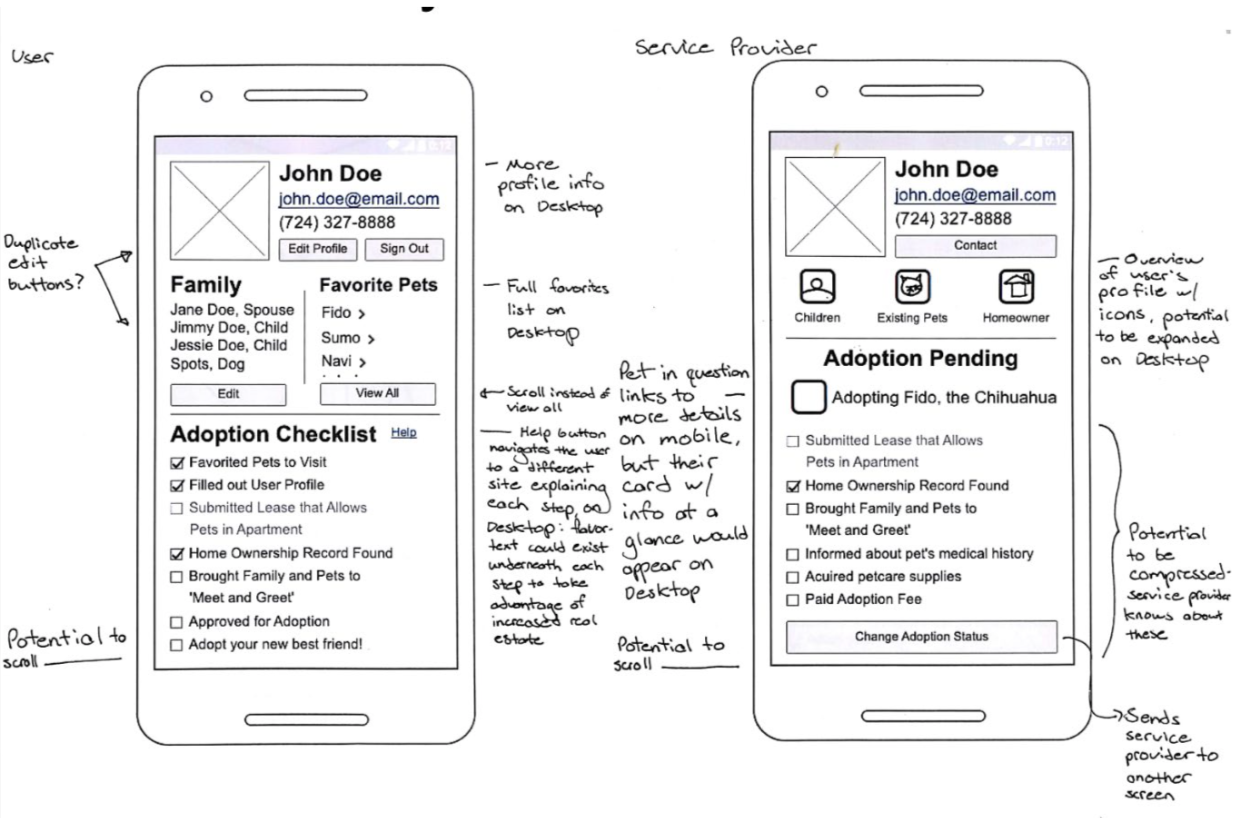 User
Duplicate
edit
buttons?
Potential to
scroll
0:12
John Doe
john.doe@email.com
(724) 327-8888
Edit Profile
Sign Out
Family
Jane Doe, Spouse
Jimmy Doe, Child
Jessie Doe, Child
Spots, Dog
Edit
Favorite Pets
Fido >
Sumo >
Navi >
View All
Adoption Checklist Help
Favorited Pets to Visit
Filled out User Profile
Submitted Lease that Allows
Pets in Apartment
Home Ownership Record Found
Brought Family and Pets to
'Meet and Greet'
Approved for Adoption
Adopt your new best friend!
- More
profile info
on Desktop
- Full favorites
list on
Desktop
Scroll instead of
view all
- Help button
navigates the user
to a different
site explaining
each step, on
Desktop: flavor-
text could exist
underneath each
step to take
advantage of
increased real
estate
Service Provider
Pet in question
links to
more details
on mobile,
but their
card w/
info at a
glance would
appear on
Desktop
Potential to
scroll
0:12
John Doe
john.doe@email.com
(724) 327-8888
Contact
Children
Existing Pets
Homeowner
Adoption Pending
Adopting Fido, the Chihuahua
Submitted Lease that Allows
Pets in Apartment
Home Ownership Record Found
Brought Family and Pets to
'Meet and Greet'
Informed about pet's medical history
Acuired petcare supplies
Paid Adoption Fee
Change Adoption Status
- Overview
of user's
profile w/
icons, potential
to be expanded
on Desktop
Potential
to be
compressed-
service provider
knows about
these
Sends
service
provider to
another
screen